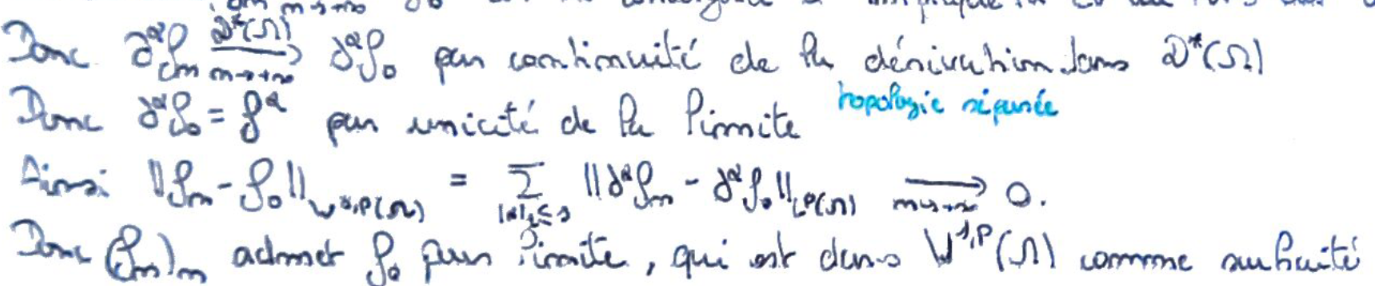 Donc ∂^α f_m ⟶ ∂^α f_0 par continuité de la dérivation dans D*(Ω)
m→+∞ D*(Ω)
Donc ∂^α f_0 = f^α par unicité de la limite topologie séparée
Ainsi ||f_m - f_0||_{W^{s,p}(Ω)} = Σ_{|α|≤s} ||∂^α f_m - ∂^α f_0||_{L^p(Ω)} ⟶_{m→+∞} 0.
Donc (f_m)_m admet f_0 pour limite, qui est dans W^{s,p}(Ω) comme souhaité